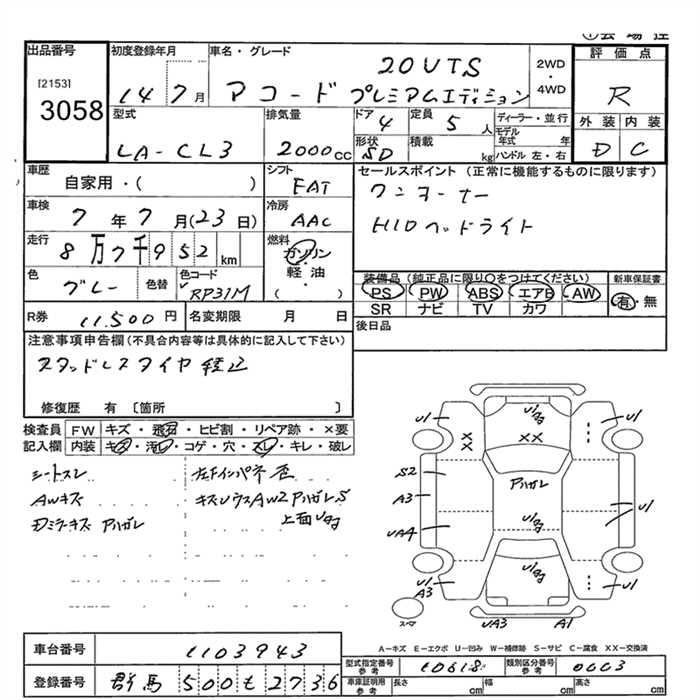 ①会場控
出品番号 初度登録年月 車名・グレード 20VTS 2WD・4WD 評価点
[2153]
3058 14 7月 アコード プレミアムエディション R
型式 排気量 ドア 定員 ディーラー・並行 外装 内装
LA-CL3 2000cc 4 5人 モデル年式 年 D C
形状 SD 積載 kg ハンドル 左・右
車歴 自家用・( ) シフト FAT セールスポイント (正常に機能するものに限ります)
ワンオーナー
車検 7年7月(23日) 冷房 AAC HIDヘッドライト
走行 8万7千952km 燃料 ガソリン・軽油・( )
色 グレー 色替 色コード RP31M 装備品(純正品に限り○をつけてください) 新車保証書
PS PW ABS エアB AW 有・無
SR ナビ TV カワ
R券 11,500円 名変期限 月 日 後日品
注意事項申告欄(不具合内容等は具体的に記入して下さい)
スタッドレスタイヤ
修復歴 有 〔箇所 〕
検査員記入欄 FW キズ・飛石・ヒビ割・リペア跡・×要
内装 キズ・汚レ・コゲ・穴・スレ・キレ・破レ
シートスレ
AWキズ
アハガレ
U1 Uタタ U1
XX XX
S2 アハガレ
A3 U1
UA4 Uタタ
U1 Uタタ U1
A3
スマ UA3 A1
A−キズ E−エクボ U−凹み W−補修跡 S−サビ C−腐食 XX−交換済
車台番号 1103943
型式指定番号 参考 10618 類別区分番号 参考 0003
登録番号 群馬 500 も 2736 車庫証明用 参考 長さ cm 幅 cm 高さ cm